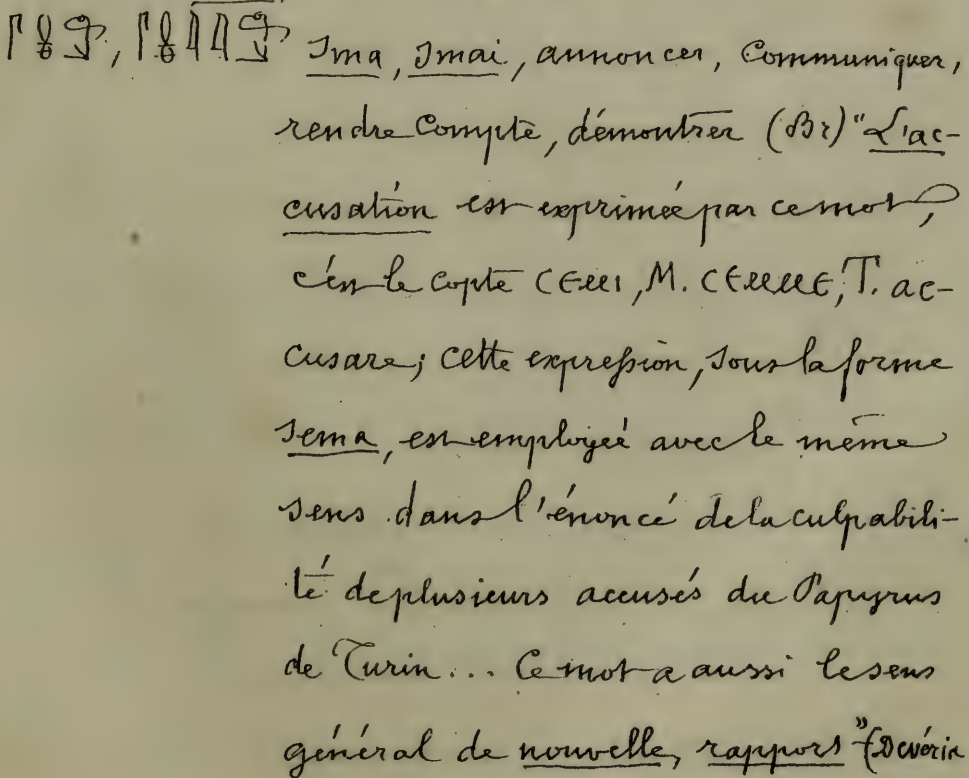 Sma, Smai, annoncer, Communiquer,
rendre Compte, démontrer (Br) "L'ac-
cusation est exprimée par ce mot,
c'est le copte ⲤⲈⲘⲒ, M. ⲤⲈⲘⲘⲈ, T. ac-
cusare; cette expression, sous la forme
sema, est employée avec le même
sens dans l'énoncé de la culpabili-
té de plusieurs accusés du Papyrus
de Turin... Ce mot a aussi le sens
général de nouvelle, rapport" (Devéria